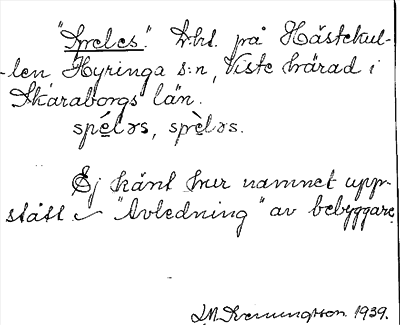 "Speles". Lht. på Hästekul-
-len, Hyringa s:n, Viste härad i
Skaraborgs län.
spélɘs, spèlɘs.
Ej känt hur namnet upp-
stått - "Avledning" av bebyggare.
1939.